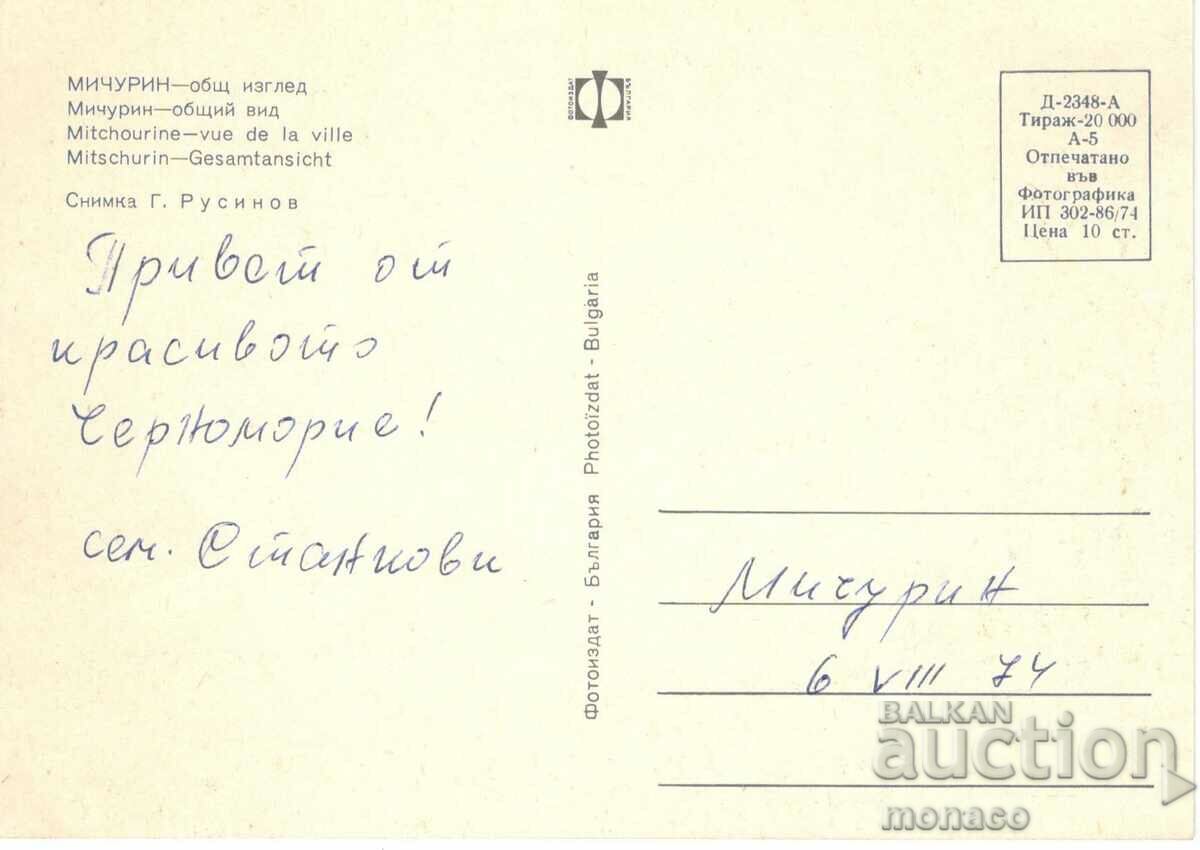 МИЧУРИН—общ изглед
Мичурин—общий вид
Mitchourine—vue de la ville
Mitschurin—Gesamtansicht
Снимка Г. Русинов
Привет от
красивото
Черноморие!
сем. Станкови
ФОТОИЗДАТ
БЪЛГАРИЯ
Фотоиздат - България Photoïzdat - Bulgaria
Д-2348-А
Тираж-20 000
А-5
Отпечатано
във
Фотографика
ИП 302-86/74
Цена 10 ст.
Мичурин
6 VIII 74
BALKAN
auction
monaco